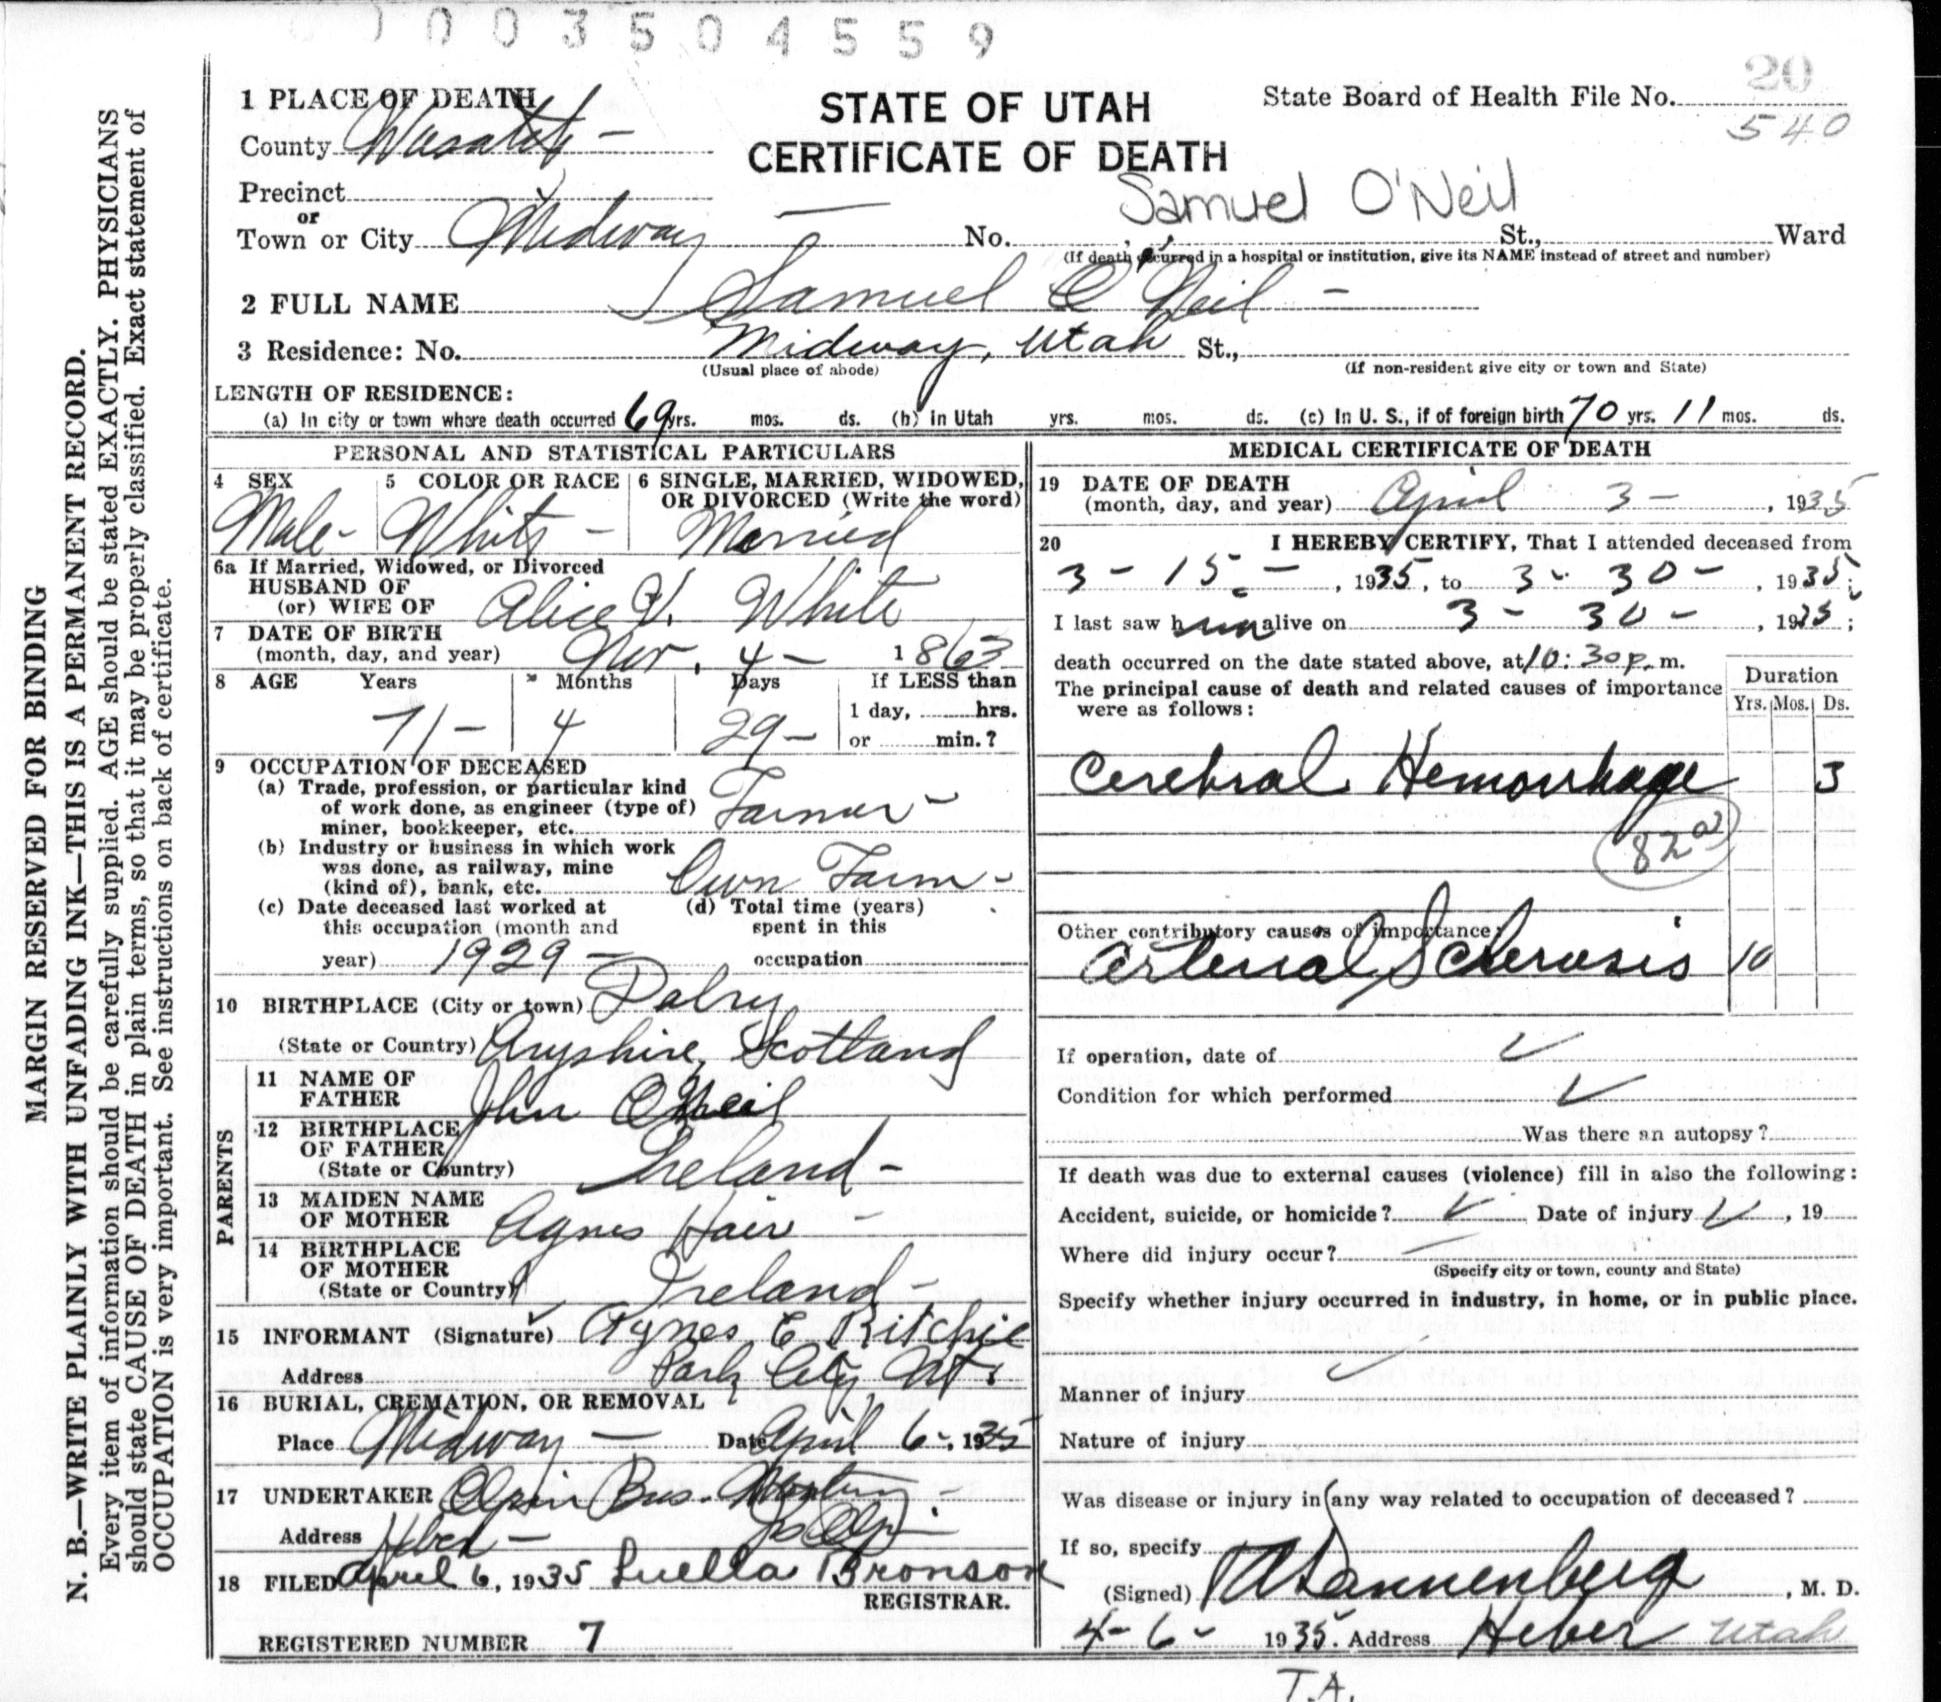 0003504559
20
1 PLACE OF DEATH
STATE OF UTAH
State Board of Health File No.
540
County Wasatch —
CERTIFICATE OF DEATH
Precinct
Samuel O'Neil
or
Town or City Midway — No. St., Ward
(If death occurred in a hospital or institution, give its NAME instead of street and number)
2 FULL NAME Samuel O'Neil —
3 Residence: No. Midway, Utah St.,
(Usual place of abode) (If non-resident give city or town and State)
LENGTH OF RESIDENCE:
(a) In city or town where death occurred 69 yrs. mos. ds. (b) in Utah yrs. mos. ds. (c) In U. S., if of foreign birth 70 yrs. 11 mos. ds.
PERSONAL AND STATISTICAL PARTICULARS
4 SEX 5 COLOR OR RACE 6 SINGLE, MARRIED, WIDOWED,
OR DIVORCED (Write the word)
Male - White - Married
6a If Married, Widowed, or Divorced
HUSBAND OF
(or) WIFE OF Alice V. White
7 DATE OF BIRTH
(month, day, and year) Nov. 4 - 1863
8 AGE Years Months Days If LESS than
1 day, hrs.
71 - 4 29 - or min.?
9 OCCUPATION OF DECEASED
(a) Trade, profession, or particular kind
of work done, as engineer (type of) Farmer -
miner, bookkeeper, etc.
(b) Industry or business in which work
was done, as railway, mine
(kind of), bank, etc. Own Farm -
(c) Date deceased last worked at (d) Total time (years)
this occupation (month and spent in this
year) 1929 - occupation
10 BIRTHPLACE (City or town) Dalry
(State or Country) Aryshire, Scotland
PARENTS
11 NAME OF
FATHER John O'Neil
12 BIRTHPLACE
OF FATHER
(State or Country) Ireland -
13 MAIDEN NAME
OF MOTHER Agnes Hair -
14 BIRTHPLACE
OF MOTHER
(State or Country) Ireland -
15 INFORMANT (Signature) Agnes E Ritchie
Address Park City Ut.
16 BURIAL, CREMATION, OR REMOVAL
Place Midway — Date April 6-, 1935
17 UNDERTAKER Olpin Bros. Mortuary -
Address Heber —
18 FILED April 6, 1935 Luella Bronson
REGISTRAR.
REGISTERED NUMBER 7
MEDICAL CERTIFICATE OF DEATH
19 DATE OF DEATH
(month, day, and year) April 3 - , 1935
20 I HEREBY CERTIFY, That I attended deceased from
3 - 15 - , 1935, to 3 - 30 - , 1935;
I last saw him alive on 3 - 30 - , 1935;
death occurred on the date stated above, at 10:30 p. m.
The principal cause of death and related causes of importance
were as follows:
Duration
Yrs. Mos. Ds.
Cerebral Hemorrhage 3
82 a
Other contributory causes of importance:
Arterial Sclerosis 10
If operation, date of
Condition for which performed
Was there an autopsy?
If death was due to external causes (violence) fill in also the following:
Accident, suicide, or homicide? Date of injury , 19
Where did injury occur?
(Specify city or town, county and State)
Specify whether injury occurred in industry, in home, or in public place.
Manner of injury
Nature of injury
Was disease or injury in any way related to occupation of deceased?
If so, specify
(Signed) Dannenberg , M. D.
4-6- 1935. Address Heber Utah
T.A.
MARGIN RESERVED FOR BINDING
N. B.—WRITE PLAINLY WITH UNFADING INK—THIS IS A PERMANENT RECORD.
Every item of information should be carefully supplied. AGE should be stated EXACTLY. PHYSICIANS
should state CAUSE OF DEATH in plain terms, so that it may be properly classified. Exact statement of
OCCUPATION is very important. See instructions on back of certificate.